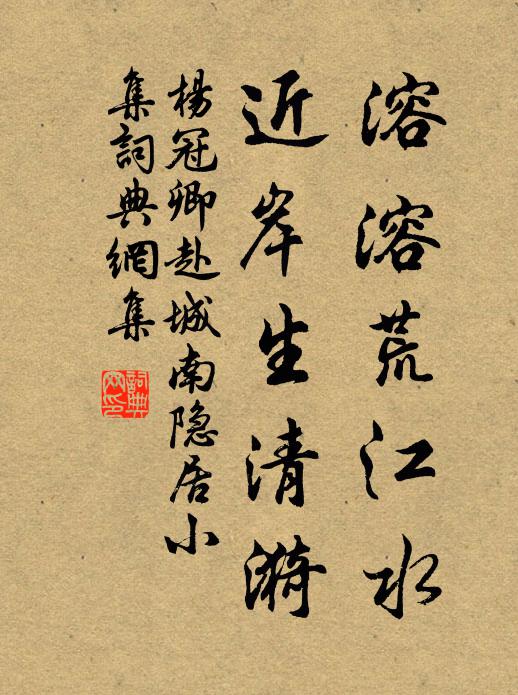 溶溶荒江水
近岸生清漪
楊冠卿赴城南隐居小
集詞典網集
詞典
网印